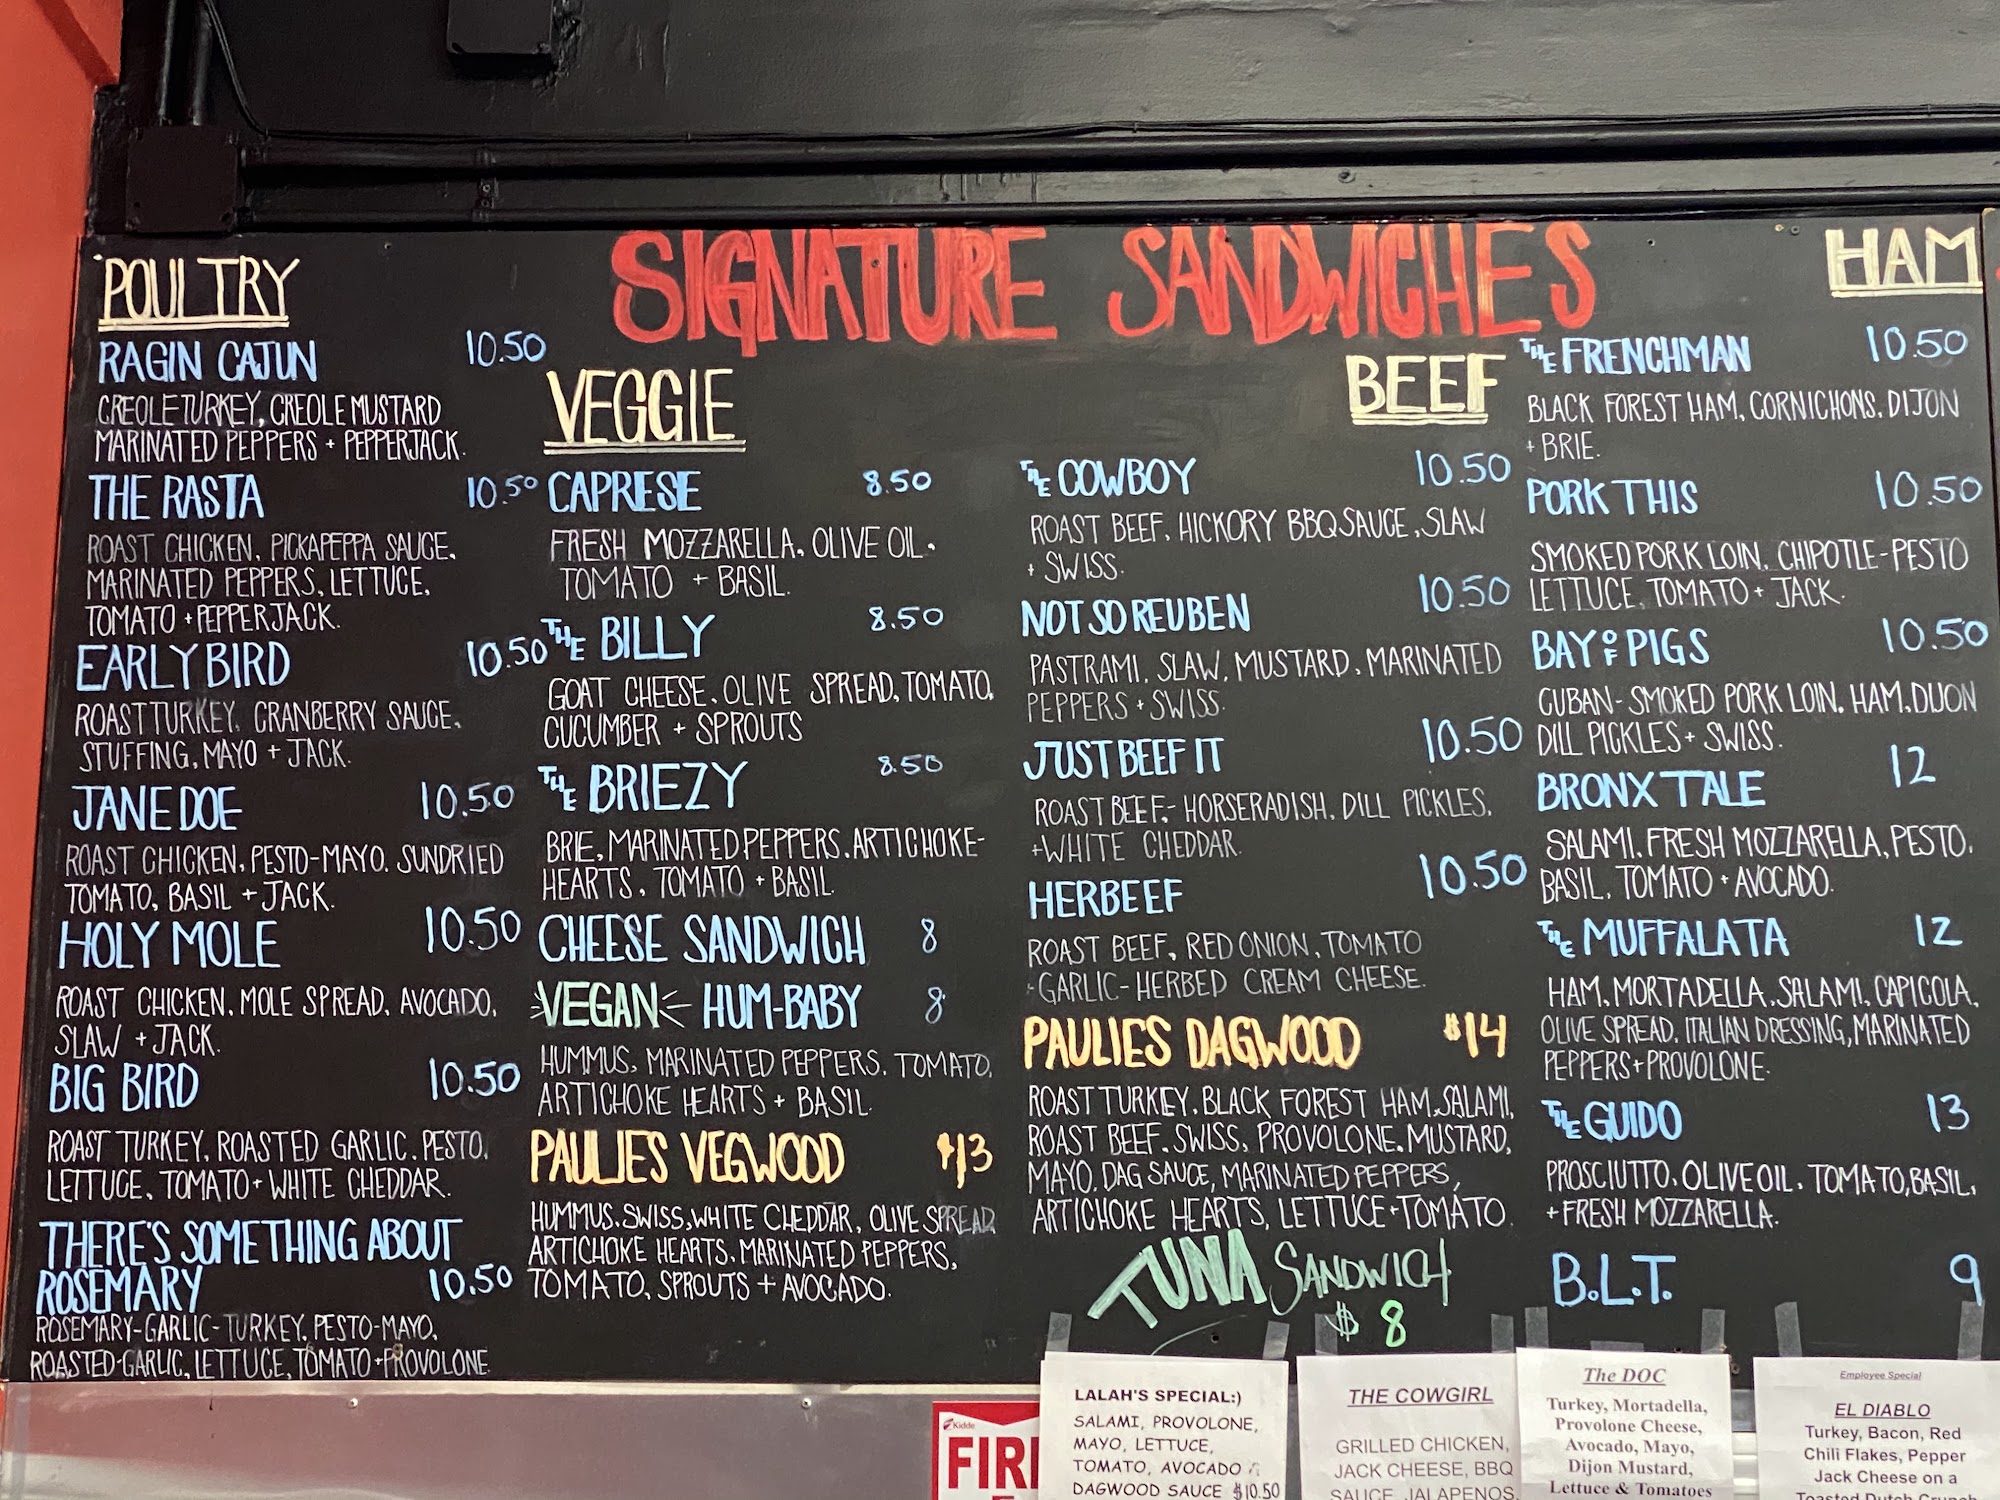 SIGNATURE SANDWICHES
POULTRY
RAGIN CAJUN 10.50
CREOLE TURKEY, CREOLE MUSTARD
MARINATED PEPPERS + PEPPERJACK.
THE RASTA 10.50
ROAST CHICKEN, PICKAPEPPA SAUCE,
MARINATED PEPPERS, LETTUCE,
TOMATO + PEPPERJACK.
EARLY BIRD 10.50
ROAST TURKEY, CRANBERRY SAUCE,
STUFFING, MAYO + JACK.
JANE DOE 10.50
ROAST CHICKEN, PESTO-MAYO, SUNDRIED
TOMATO, BASIL + JACK.
HOLY MOLE 10.50
ROAST CHICKEN, MOLE SPREAD, AVOCADO,
SLAW + JACK.
BIG BIRD 10.50
ROAST TURKEY, ROASTED GARLIC, PESTO,
LETTUCE, TOMATO + WHITE CHEDDAR.
THERE'S SOMETHING ABOUT
ROSEMARY 10.50
ROSEMARY-GARLIC-TURKEY, PESTO-MAYO,
ROASTED-GARLIC, LETTUCE, TOMATO + PROVOLONE.
VEGGIE
CAPRESE 8.50
FRESH MOZZARELLA, OLIVE OIL,
TOMATO + BASIL.
THE BILLY 8.50
GOAT CHEESE, OLIVE SPREAD, TOMATO,
CUCUMBER + SPROUTS
THE BRIEZY 8.50
BRIE, MARINATED PEPPERS, ARTICHOKE-
HEARTS, TOMATO + BASIL.
CHEESE SANDWICH 8
VEGAN HUM-BABY 8
HUMMUS, MARINATED PEPPERS, TOMATO,
ARTICHOKE HEARTS + BASIL.
PAULIES VEGWOOD $13
HUMMUS, SWISS, WHITE CHEDDAR, OLIVE SPREAD
ARTICHOKE HEARTS, MARINATED PEPPERS,
TOMATO, SPROUTS + AVOCADO.
BEEF
THE COWBOY 10.50
ROAST BEEF, HICKORY BBQ SAUCE, SLAW
+ SWISS.
NOT SO REUBEN 10.50
PASTRAMI, SLAW, MUSTARD, MARINATED
PEPPERS + SWISS.
JUST BEEF IT 10.50
ROAST BEEF, HORSERADISH, DILL PICKLES,
+ WHITE CHEDDAR.
HERBEEF 10.50
ROAST BEEF, RED ONION, TOMATO
GARLIC-HERBED CREAM CHEESE.
PAULIES DAGWOOD $14
ROAST TURKEY, BLACK FOREST HAM, SALAMI,
ROAST BEEF, SWISS, PROVOLONE, MUSTARD,
MAYO, DAG SAUCE, MARINATED PEPPERS,
ARTICHOKE HEARTS, LETTUCE + TOMATO.
TUNA SANDWICH
$8
HAM
THE FRENCHMAN 10.50
BLACK FOREST HAM, CORNICHONS, DIJON
+ BRIE.
PORK THIS 10.50
SMOKED PORK LOIN, CHIPOTLE-PESTO
LETTUCE, TOMATO + JACK.
BAY OF PIGS 10.50
CUBAN-SMOKED PORK LOIN, HAM, DIJON
DILL PICKLES + SWISS.
BRONX TALE 12
SALAMI, FRESH MOZZARELLA, PESTO,
BASIL, TOMATO + AVOCADO.
THE MUFFALATA 12
HAM, MORTADELLA, SALAMI, CAPICOLA,
OLIVE SPREAD, ITALIAN DRESSING, MARINATED
PEPPERS + PROVOLONE.
THE GUIDO 13
PROSCIUTTO, OLIVE OIL, TOMATO, BASIL,
+ FRESH MOZZARELLA.
B.L.T. 9
Kidde
FIRE
LALAH'S SPECIAL:)
SALAMI, PROVOLONE,
MAYO, LETTUCE,
TOMATO, AVOCADO
DAGWOOD SAUCE $10.50
THE COWGIRL
GRILLED CHICKEN,
JACK CHEESE, BBQ
SAUCE, JALAPENOS,
The DOC
Turkey, Mortadella,
Provolone Cheese,
Avocado, Mayo,
Dijon Mustard,
Lettuce & Tomatoes
Employee Special
EL DIABLO
Turkey, Bacon, Red
Chili Flakes, Pepper
Jack Cheese on a
Toasted Dutch Crunch